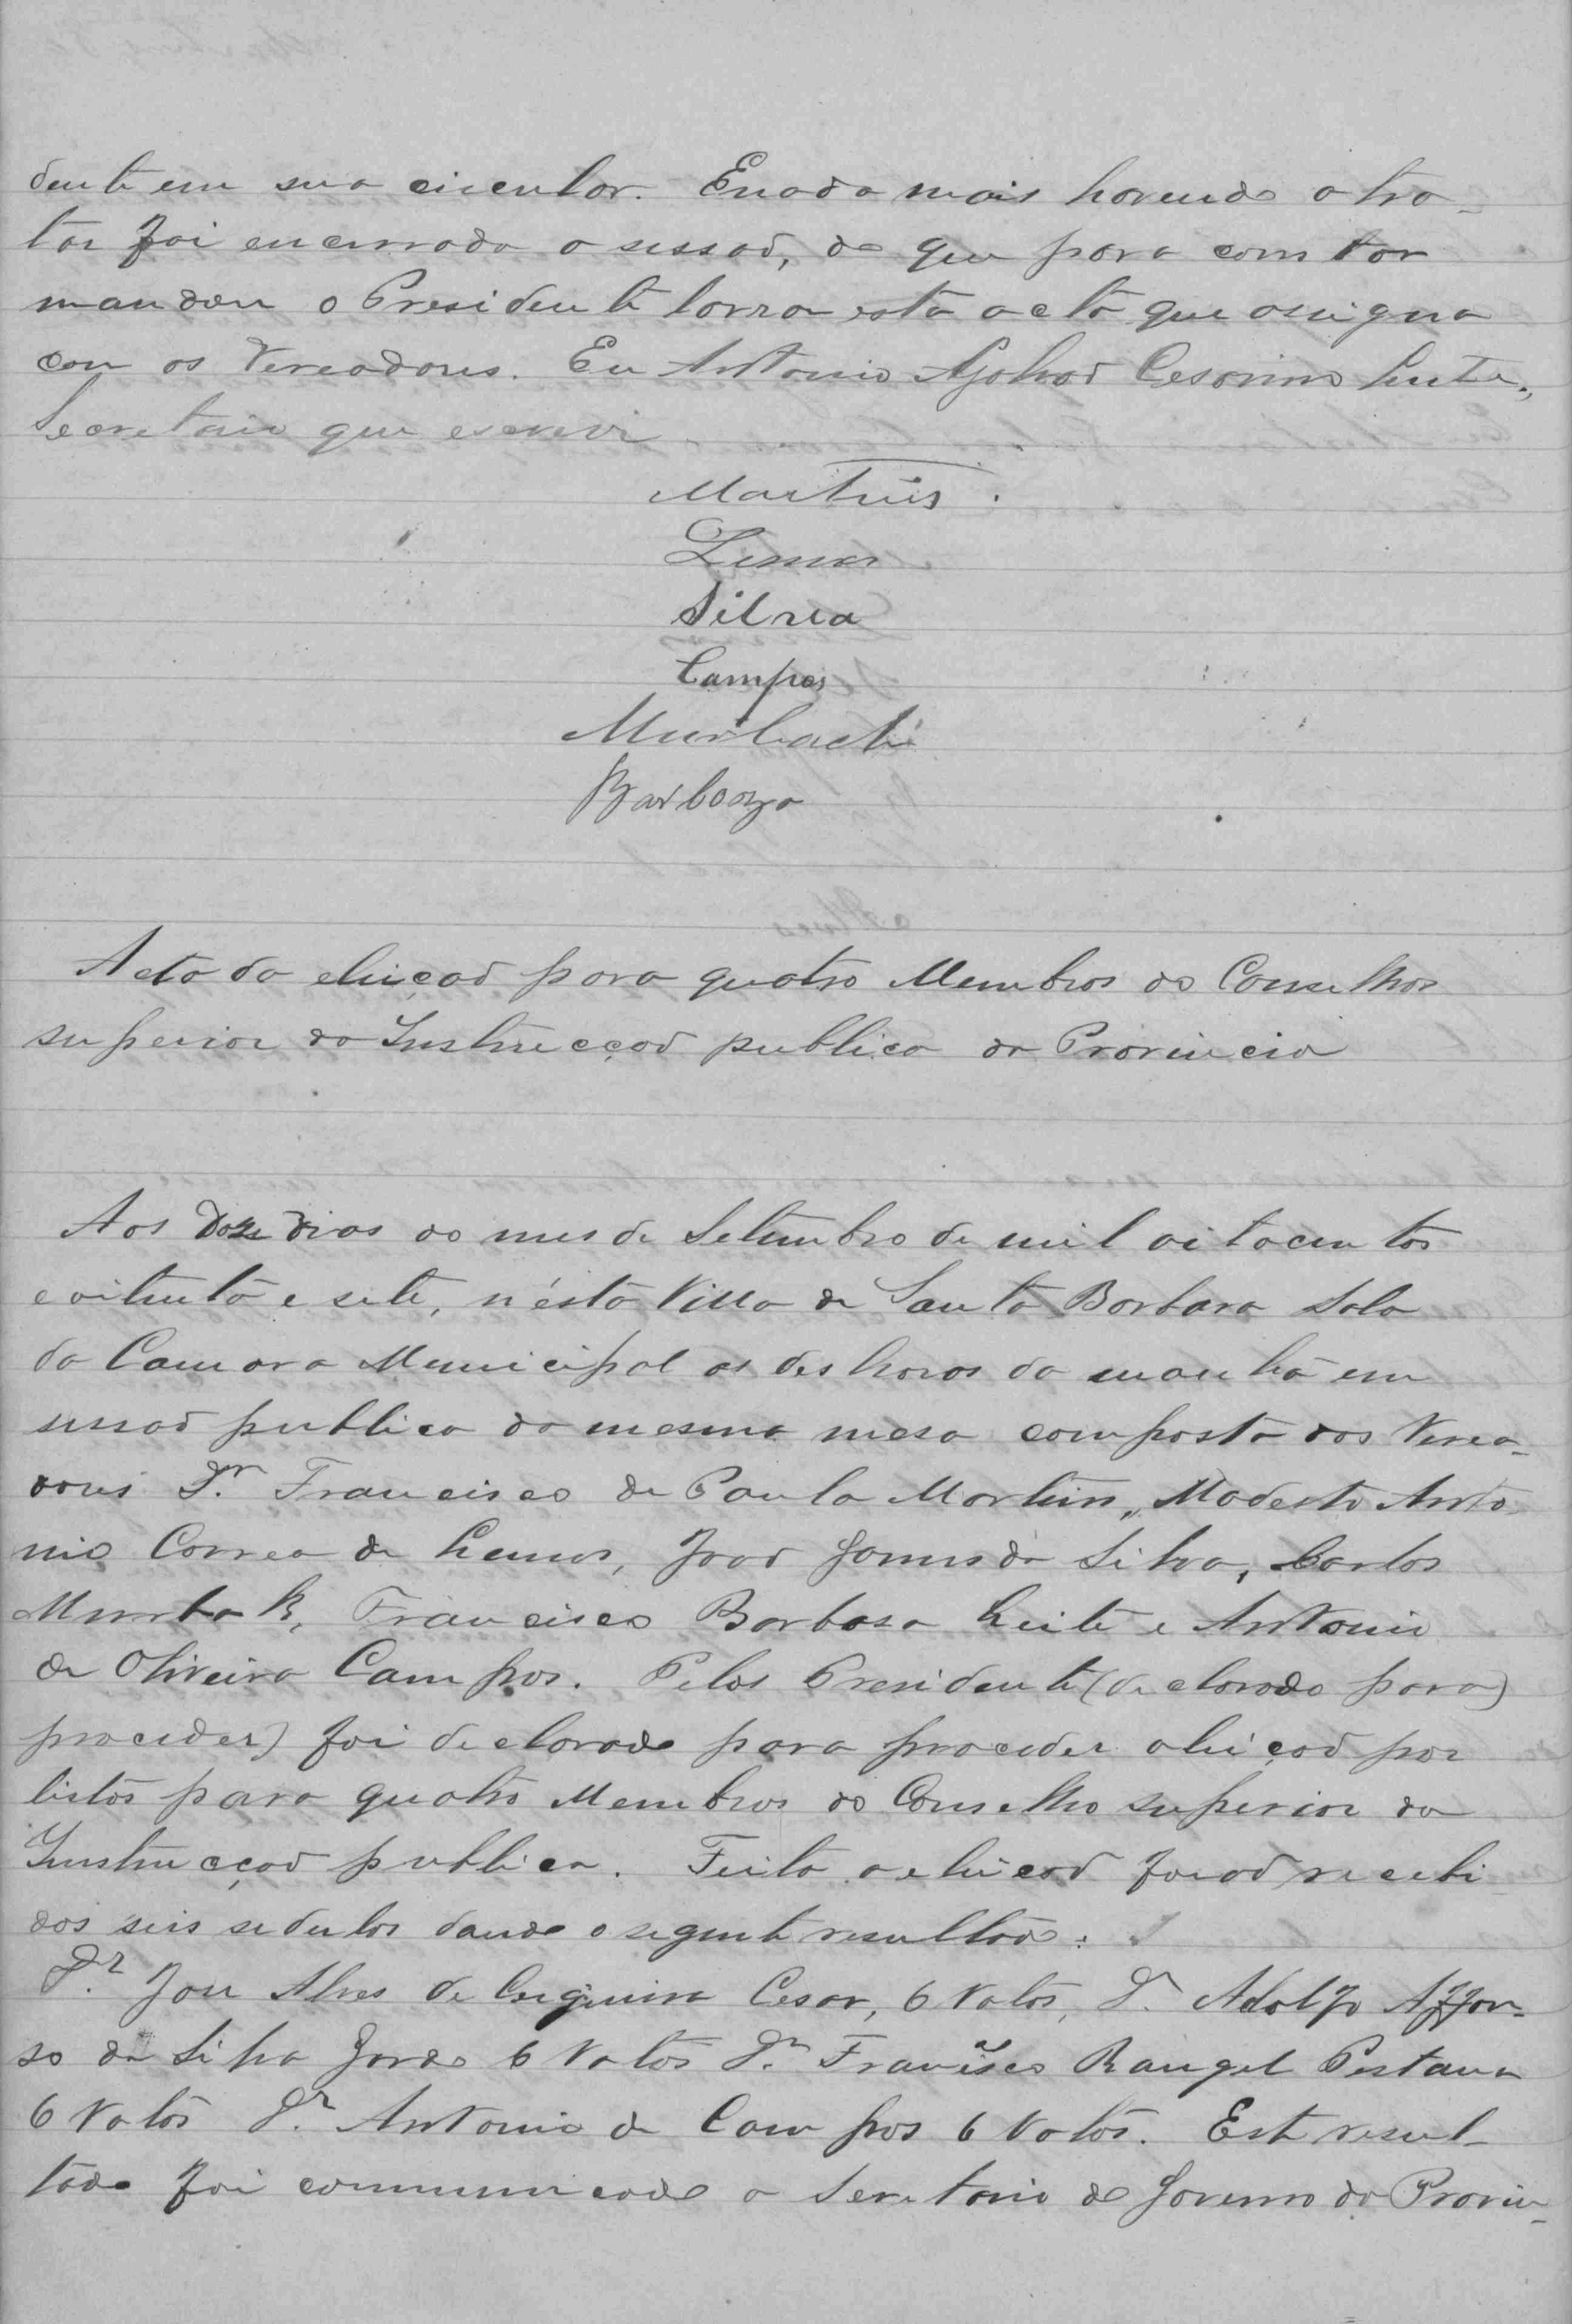 dente em sua circular. E nada mais havendo a tra-
tar foi encerrada a sessaõ, do que para constar
mandou o Presidente lavrar esta acta que assigna
com os Vereadores. Eu Antonio Cesarino Leite,
Secretario que escrevi.
Martins.
Lemos
Silva
Campos
Murbach
Barboza
Acta da eleiçaõ para quatro Membros do Conselhos
superior da Instrucçaõ publica da Provincia
Aos doze dias do mes de Setembro de mil oitocentos
e oitenta e sete, n'ésta Villa de Santa Barbara Sala
da Camara Municipal as des horas da manhã em
sessaõ publica da mesma mesa composta dos Verea-
dores Dr. Francisco de Paula Martins, Modesto Anto
nio Correa de Lemos, Joaõ Gomes da Silva, Carlos
Murbak, Francisco Barbosa Leite e Antonio
de Oliveira Campos. Pelos Presidente (declarado para)
proceder) foi declarado para proceder a leiçaõ por
listas para quatro Membros do Conselho superior da
Instrucçaõ publica. Feita a eleiçaõ foraõ recebi
dos seis sedulas dando o segente resultado:
Dr. José Alves de Cerqueira Cesar, 6 Votos, Dr. Adolfo Affon-
so da Silva Gordo 6 Votos Dr. Francisco Rangel Pestana
6 Votos Dr. Antonio de Campos 6 Votos. Este resul-
tado foi communicado a Secretario do Governo da Provin-